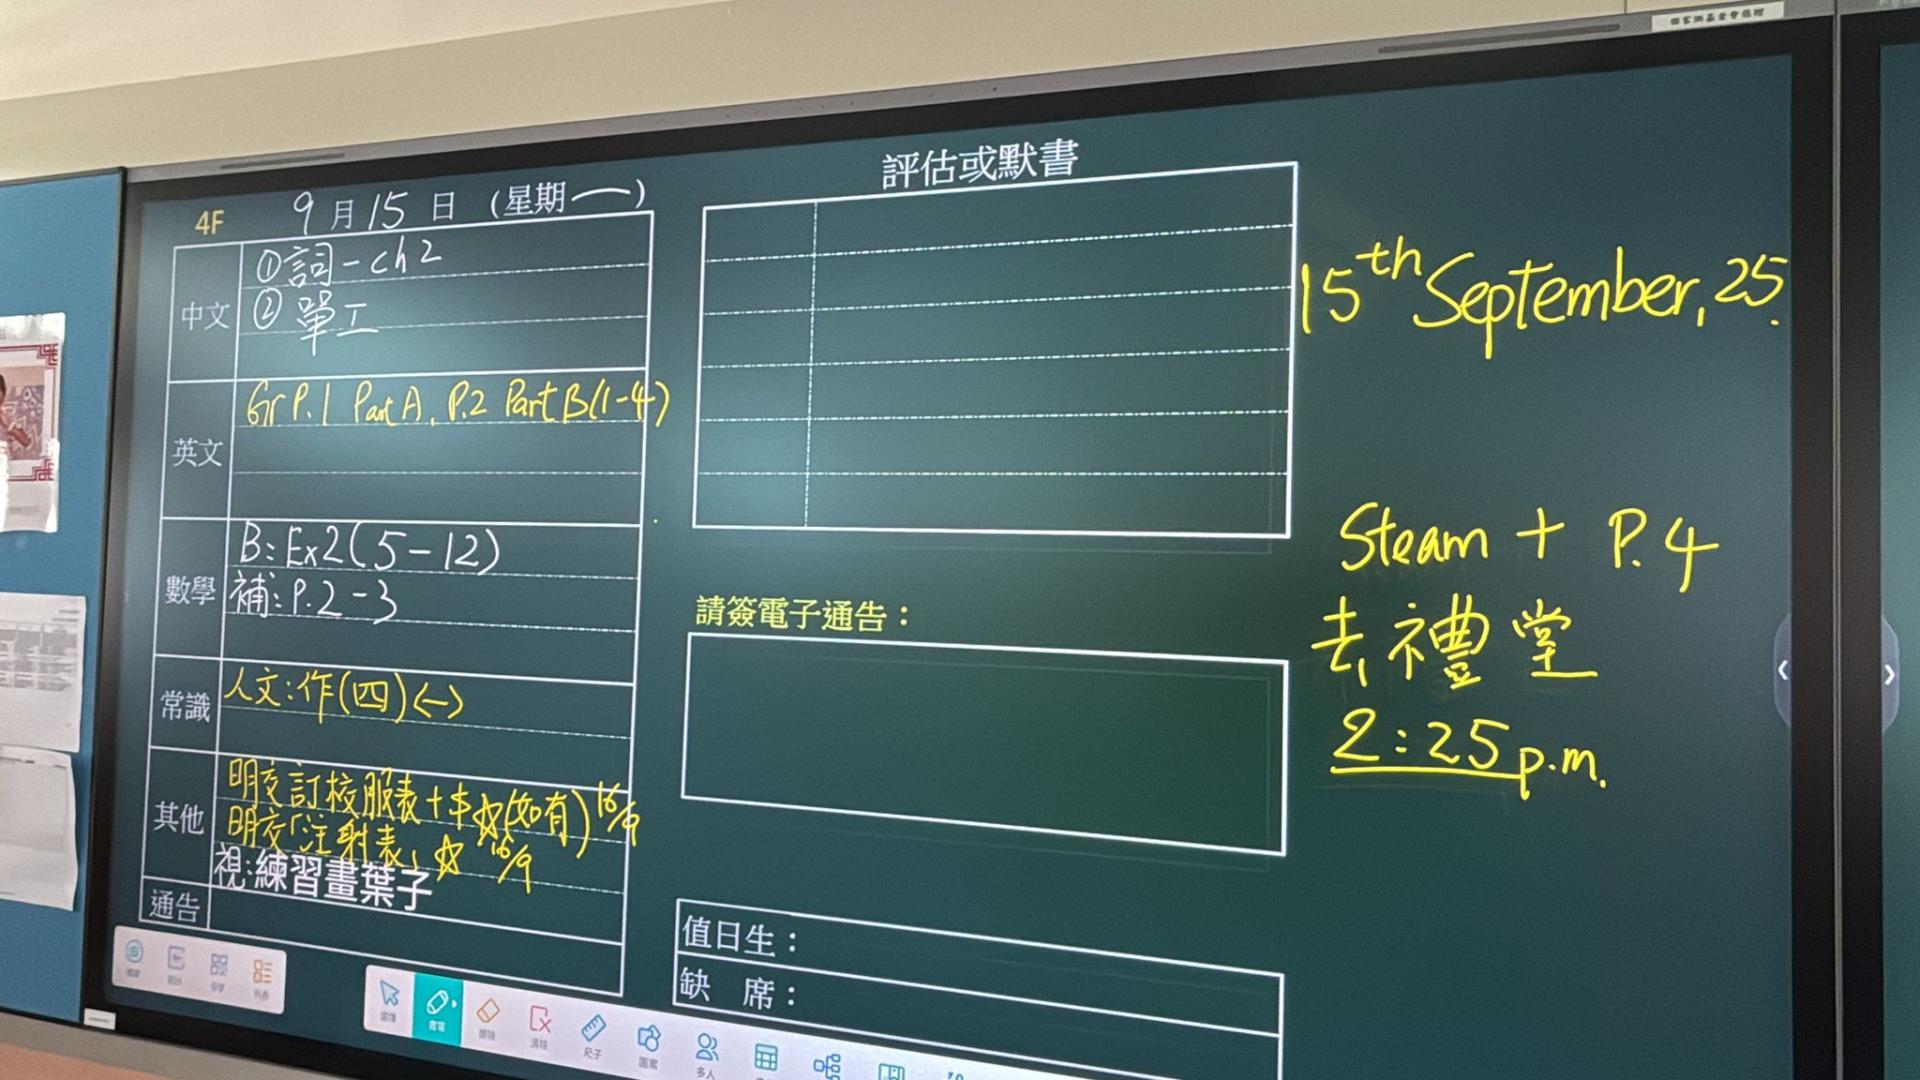 4F 9月15日 (星期一)
中文
①詞-ch2
②單工
英文
Gr P.1 Part A, P.2 Part B(1-4)
數學
B: Ex2(5-12)
補: P.2-3
常識
人文:作(四)(一)
其他
明交訂校服表+$☆(如有) 16/9
明交「注射表」☆ 16/9
視:練習畫葉子
通告
評估或默書
請簽電子通告：
值日生：
缺 席：
15th September, 25.
Steam + P.4
去禮堂
2:25p.m.
選擇
書寫
擦除
清除
尺子
圖案
多人